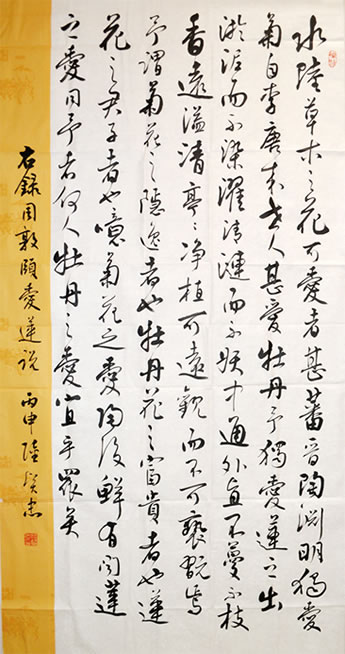 水陸草木之花可愛者甚蕃晉陶淵明獨愛
菊自李唐來世人甚愛牡丹予獨愛蓮之出
淤泥而不染濯清漣而不妖中通外直不蔓不枝
香遠溢清亭〻净植可遠觀而不可褻翫焉
予謂菊花之隱逸者也牡丹花之富貴者也蓮
花之君子者也噫菊花之愛陶後鮮有聞蓮
之愛同予者何人牡丹之愛宜乎眾矣
右録周敦頤愛蓮説 丙申 陸 忠